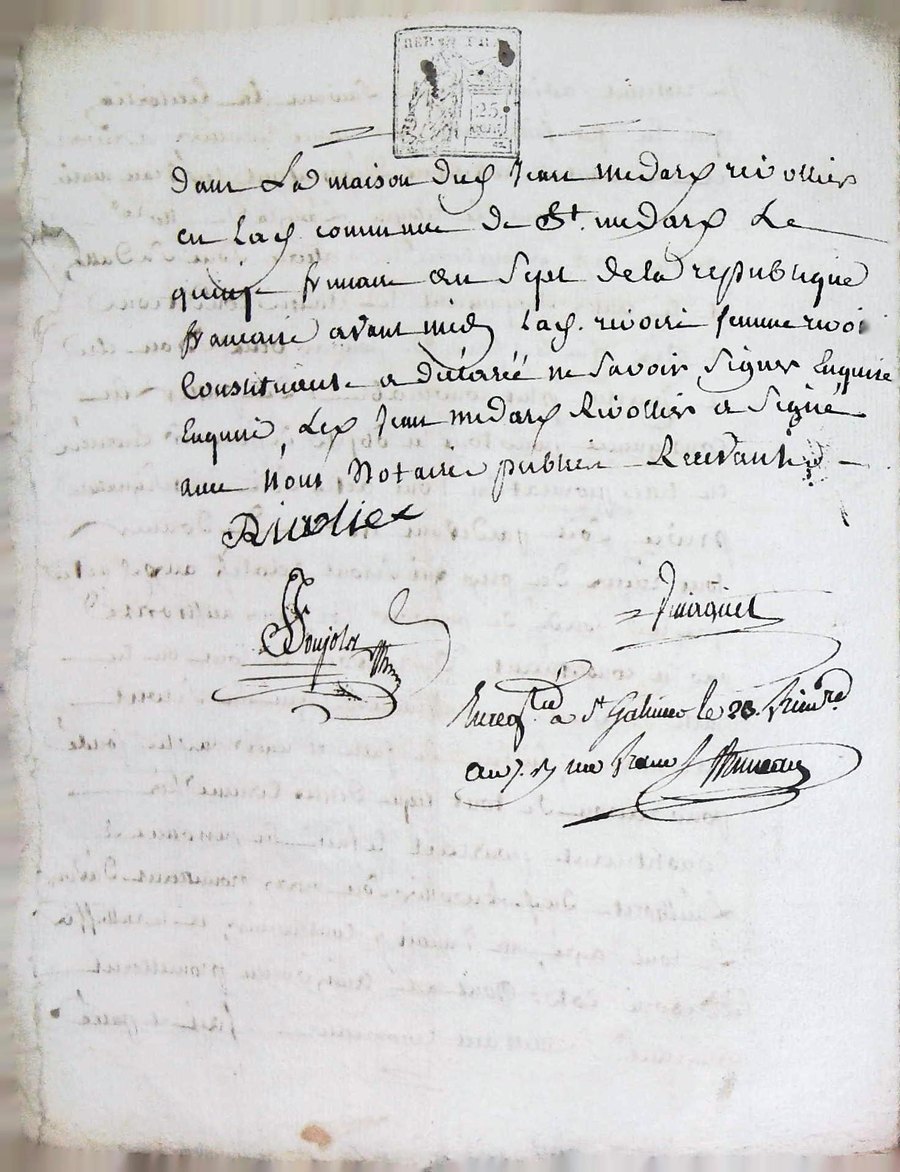 REP. FRA.
25
CENT.
dans La maison dud. Jean medard rivollier
en lad. commune de St. medard Le
quinze frimaire an Sept de la republique
francaise avant midy Lad. rivoire femme rivoi
Constituante a déclarée ne Savoir Signer Enquise
Enquise Led. Jean medard Rivollier a Signé
avec Nous Notaire public Recevant
Rivolier
Poujola
enreg.tré à St Galmier le 23. frim.re
an 7. R. un franc